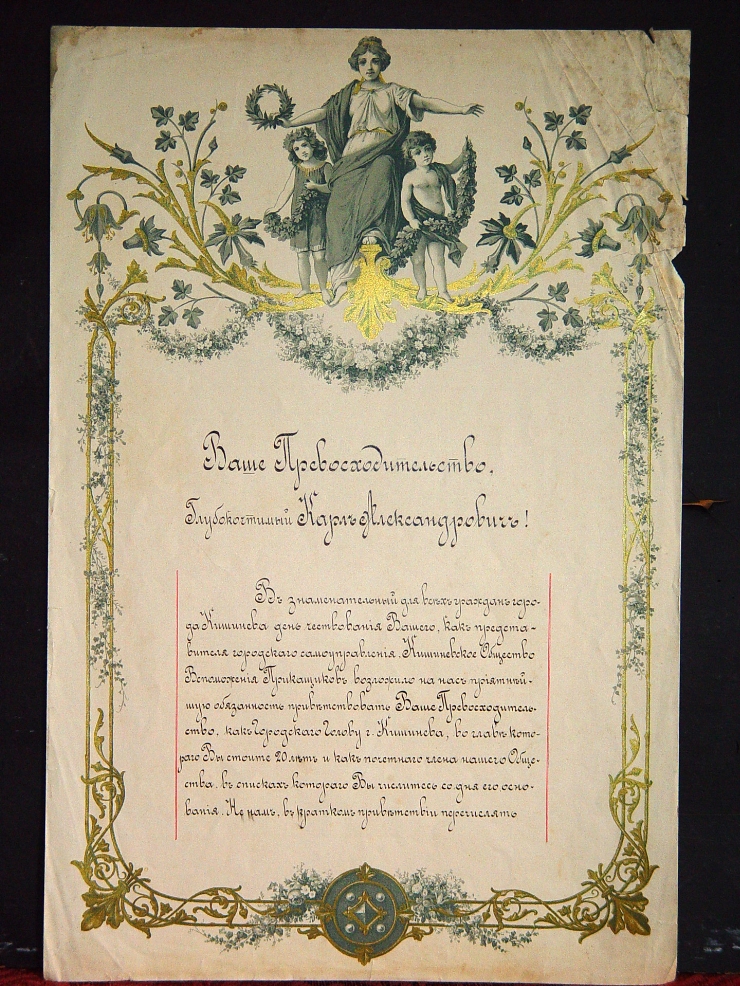 Ваше Превосходительство,
Глубокочтимый Карлъ Александровичъ!
Въ знаменательный для всѣхъ гражданъ горо-
да Кишинева день чествованія Вашего, какъ предста-
вителя городскаго самоуправленія, Кишиневское Общество
Вспоможенія Прикащиковъ возложило на насъ пріятнѣй-
шую обязанность привѣтствовать Ваше Превосходитель-
ство, какъ Городскаго Голову г. Кишинева, во главѣ кото-
раго Вы стоите 20 лѣтъ и какъ почетнаго члена нашего Обще-
ства, въ спискахъ котораго Вы числитесь со дня его осно-
ванія. Не намъ, въ краткомъ привѣтствіи перечислять